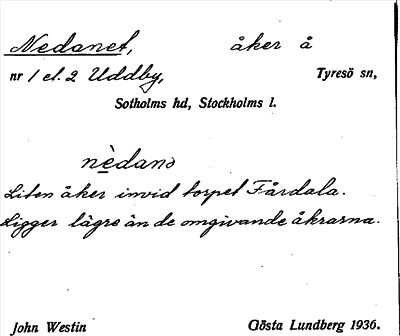 Nedanet, åker å
nr 1 el. 2 Uddby, Tyresö sn,
Sotholms hd, Stockholms l.
nèdanə
Liten åker invid torpet Fårdala.
Ligger lägre än de omgivande åkrarna.
John Westin Gösta Lundberg 1936.